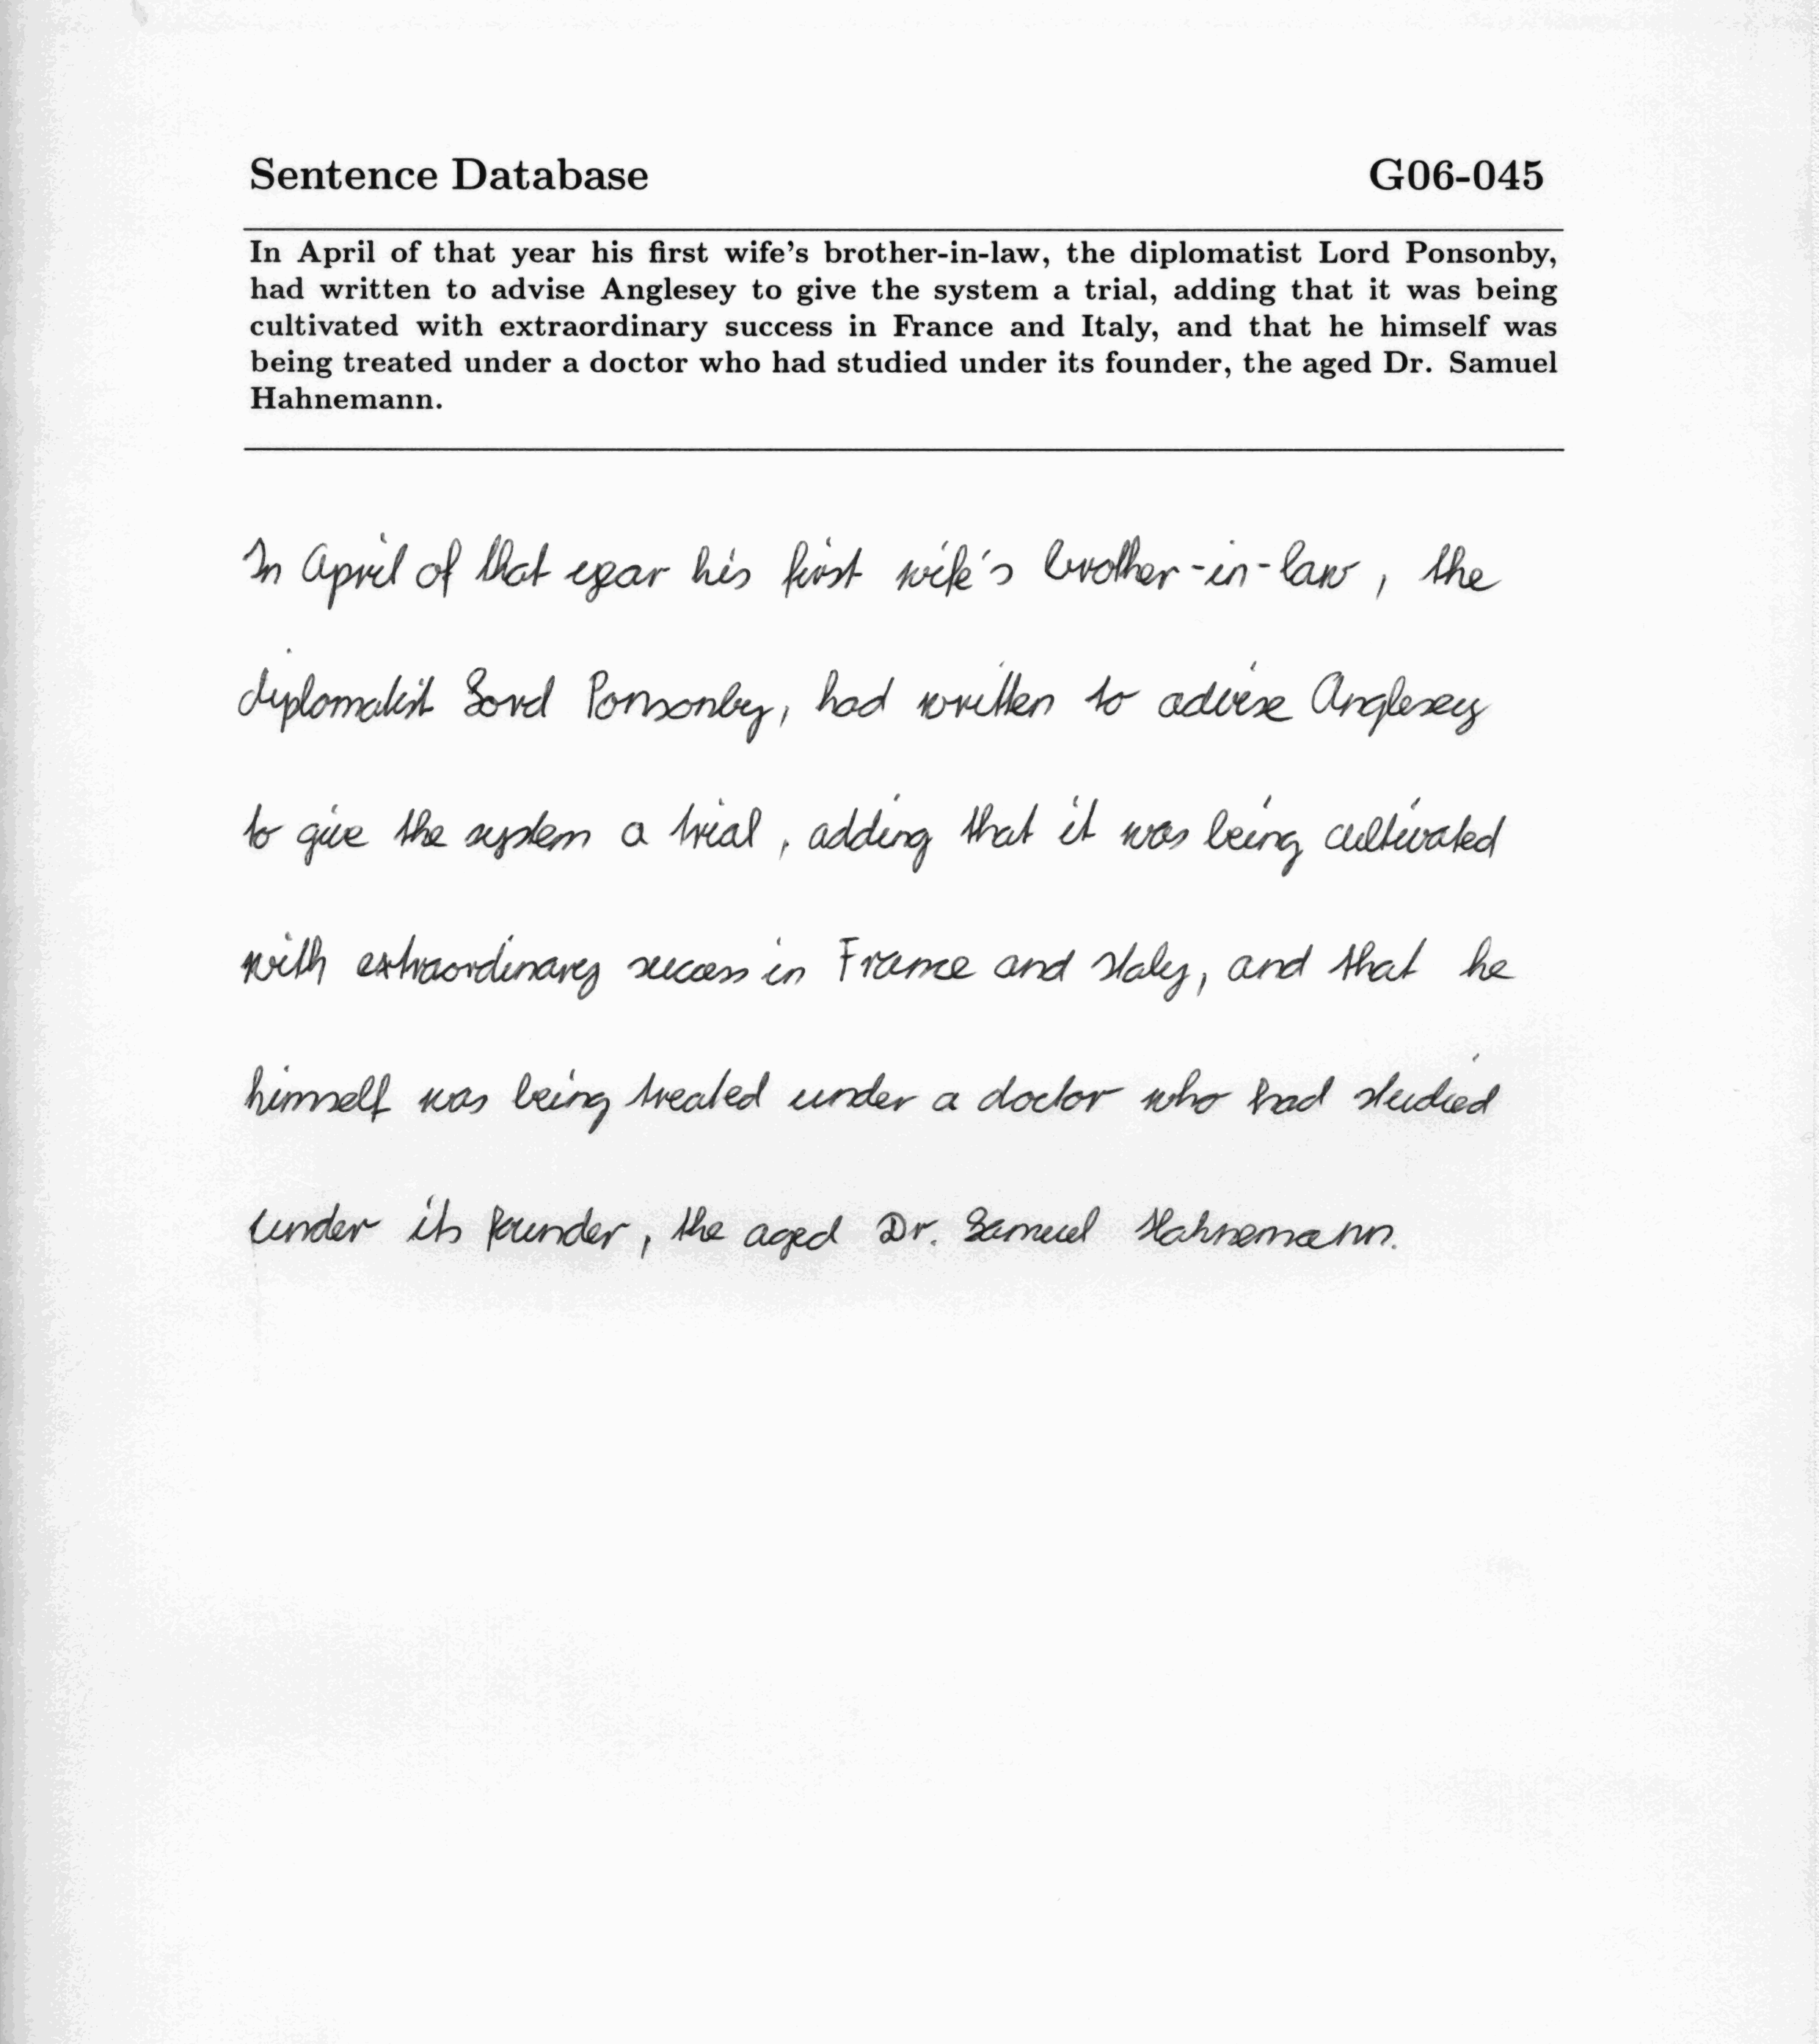 Sentence Database G06-045
In April of that year his first wife's brother-in-law, the diplomatist Lord Ponsonby,
had written to advise Anglesey to give the system a trial, adding that it was being
cultivated with extraordinary success in France and Italy, and that he himself was
being treated under a doctor who had studied under its founder, the aged Dr. Samuel
Hahnemann.
In April of that year his first wife's brother-in-law, the
diplomatist Lord Ponsonby, had written to advise Anglesey
to give the system a trial, adding that it was being cultivated
with extraordinary success in France and Italy, and that he
himself was being treated under a doctor who had studied
under its founder, the aged Dr. Samuel Hahnemann.